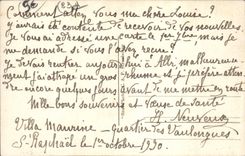 Comment allez vous ma chère Louise?
J'aurais été contente de recevoir de vos nouvelles
Je vous ai adressé une carte à mais je
me demande si vous l'avez reçue?
Je devais rentrer aujourd'hui à malheureuse
ment j'ai attrapé un gros rhume et je préfère atten
dre encore quelques jours avant de me mettre en route
Mille bons souvenirs et vœux de santé
H.
Villa Maurine - Quartier des Vaulongues
St Raphaël le 1er octobre 1930.